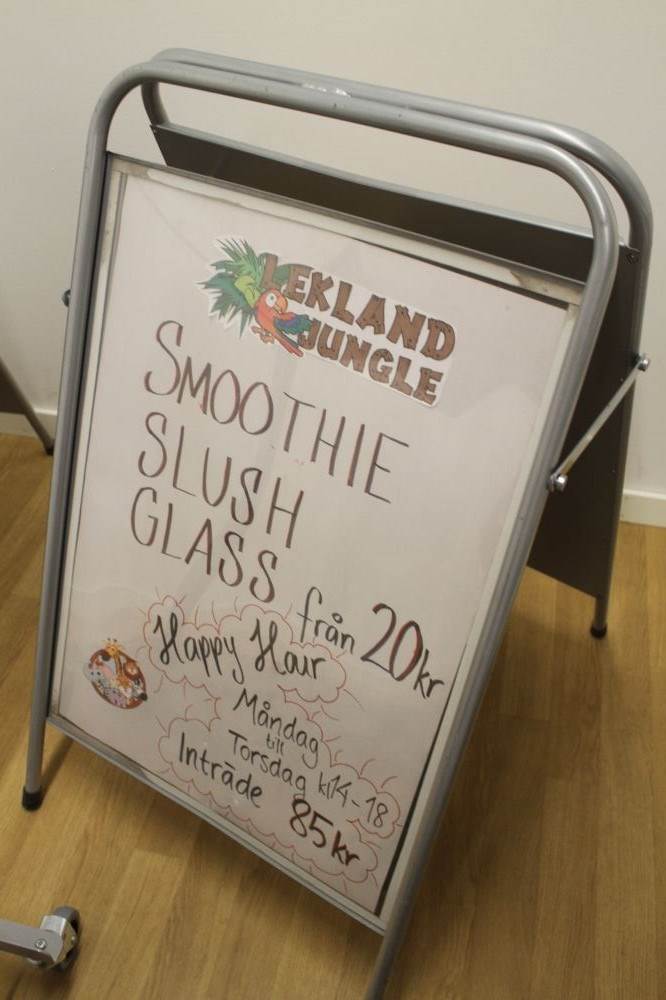 LEKLAND
JUNGLE
SMOOTHIE
SLUSH
GLASS från 20kr
Happy Hour
Måndag
till
Torsdag kl14-18
Inträde 85kr